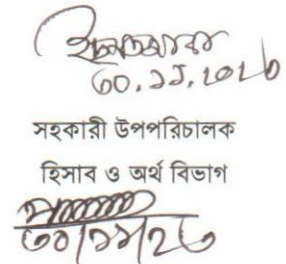 ৩০.১১.২০২৩
সহকারী উপপরিচালক
হিসাব ও অর্থ বিভাগ
৩০/১১/২৩